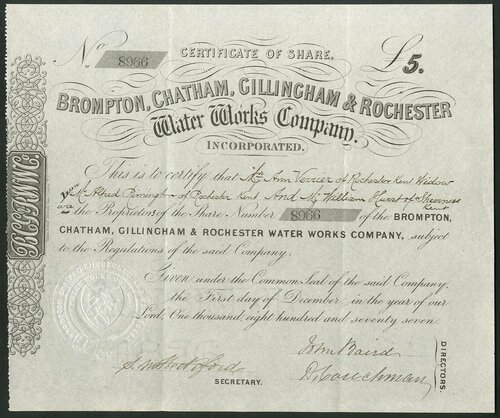 No. 8966
CERTIFICATE OF SHARE.
£5.
BROMPTON, CHATHAM, GILLINGHAM & ROCHESTER
Water Works Company.
INCORPORATED.
This is to certify that Mrs Ann Verrier of Rochester Kent Widow
Mr Alfred of Rochester Kent And Mr William Hurst of Sheerness Kent
are the Proprietors of the Share Number 8966 of the BROMPTON,
CHATHAM, GILLINGHAM & ROCHESTER WATER WORKS COMPANY, subject
to the Regulations of the said Company.
Given under the Common Seal of the said Company,
the First day of December in the year of our
Lord, One thousand, eight hundred and seventy seven
John Baird
D. Couchman
DIRECTORS.
SECRETARY.